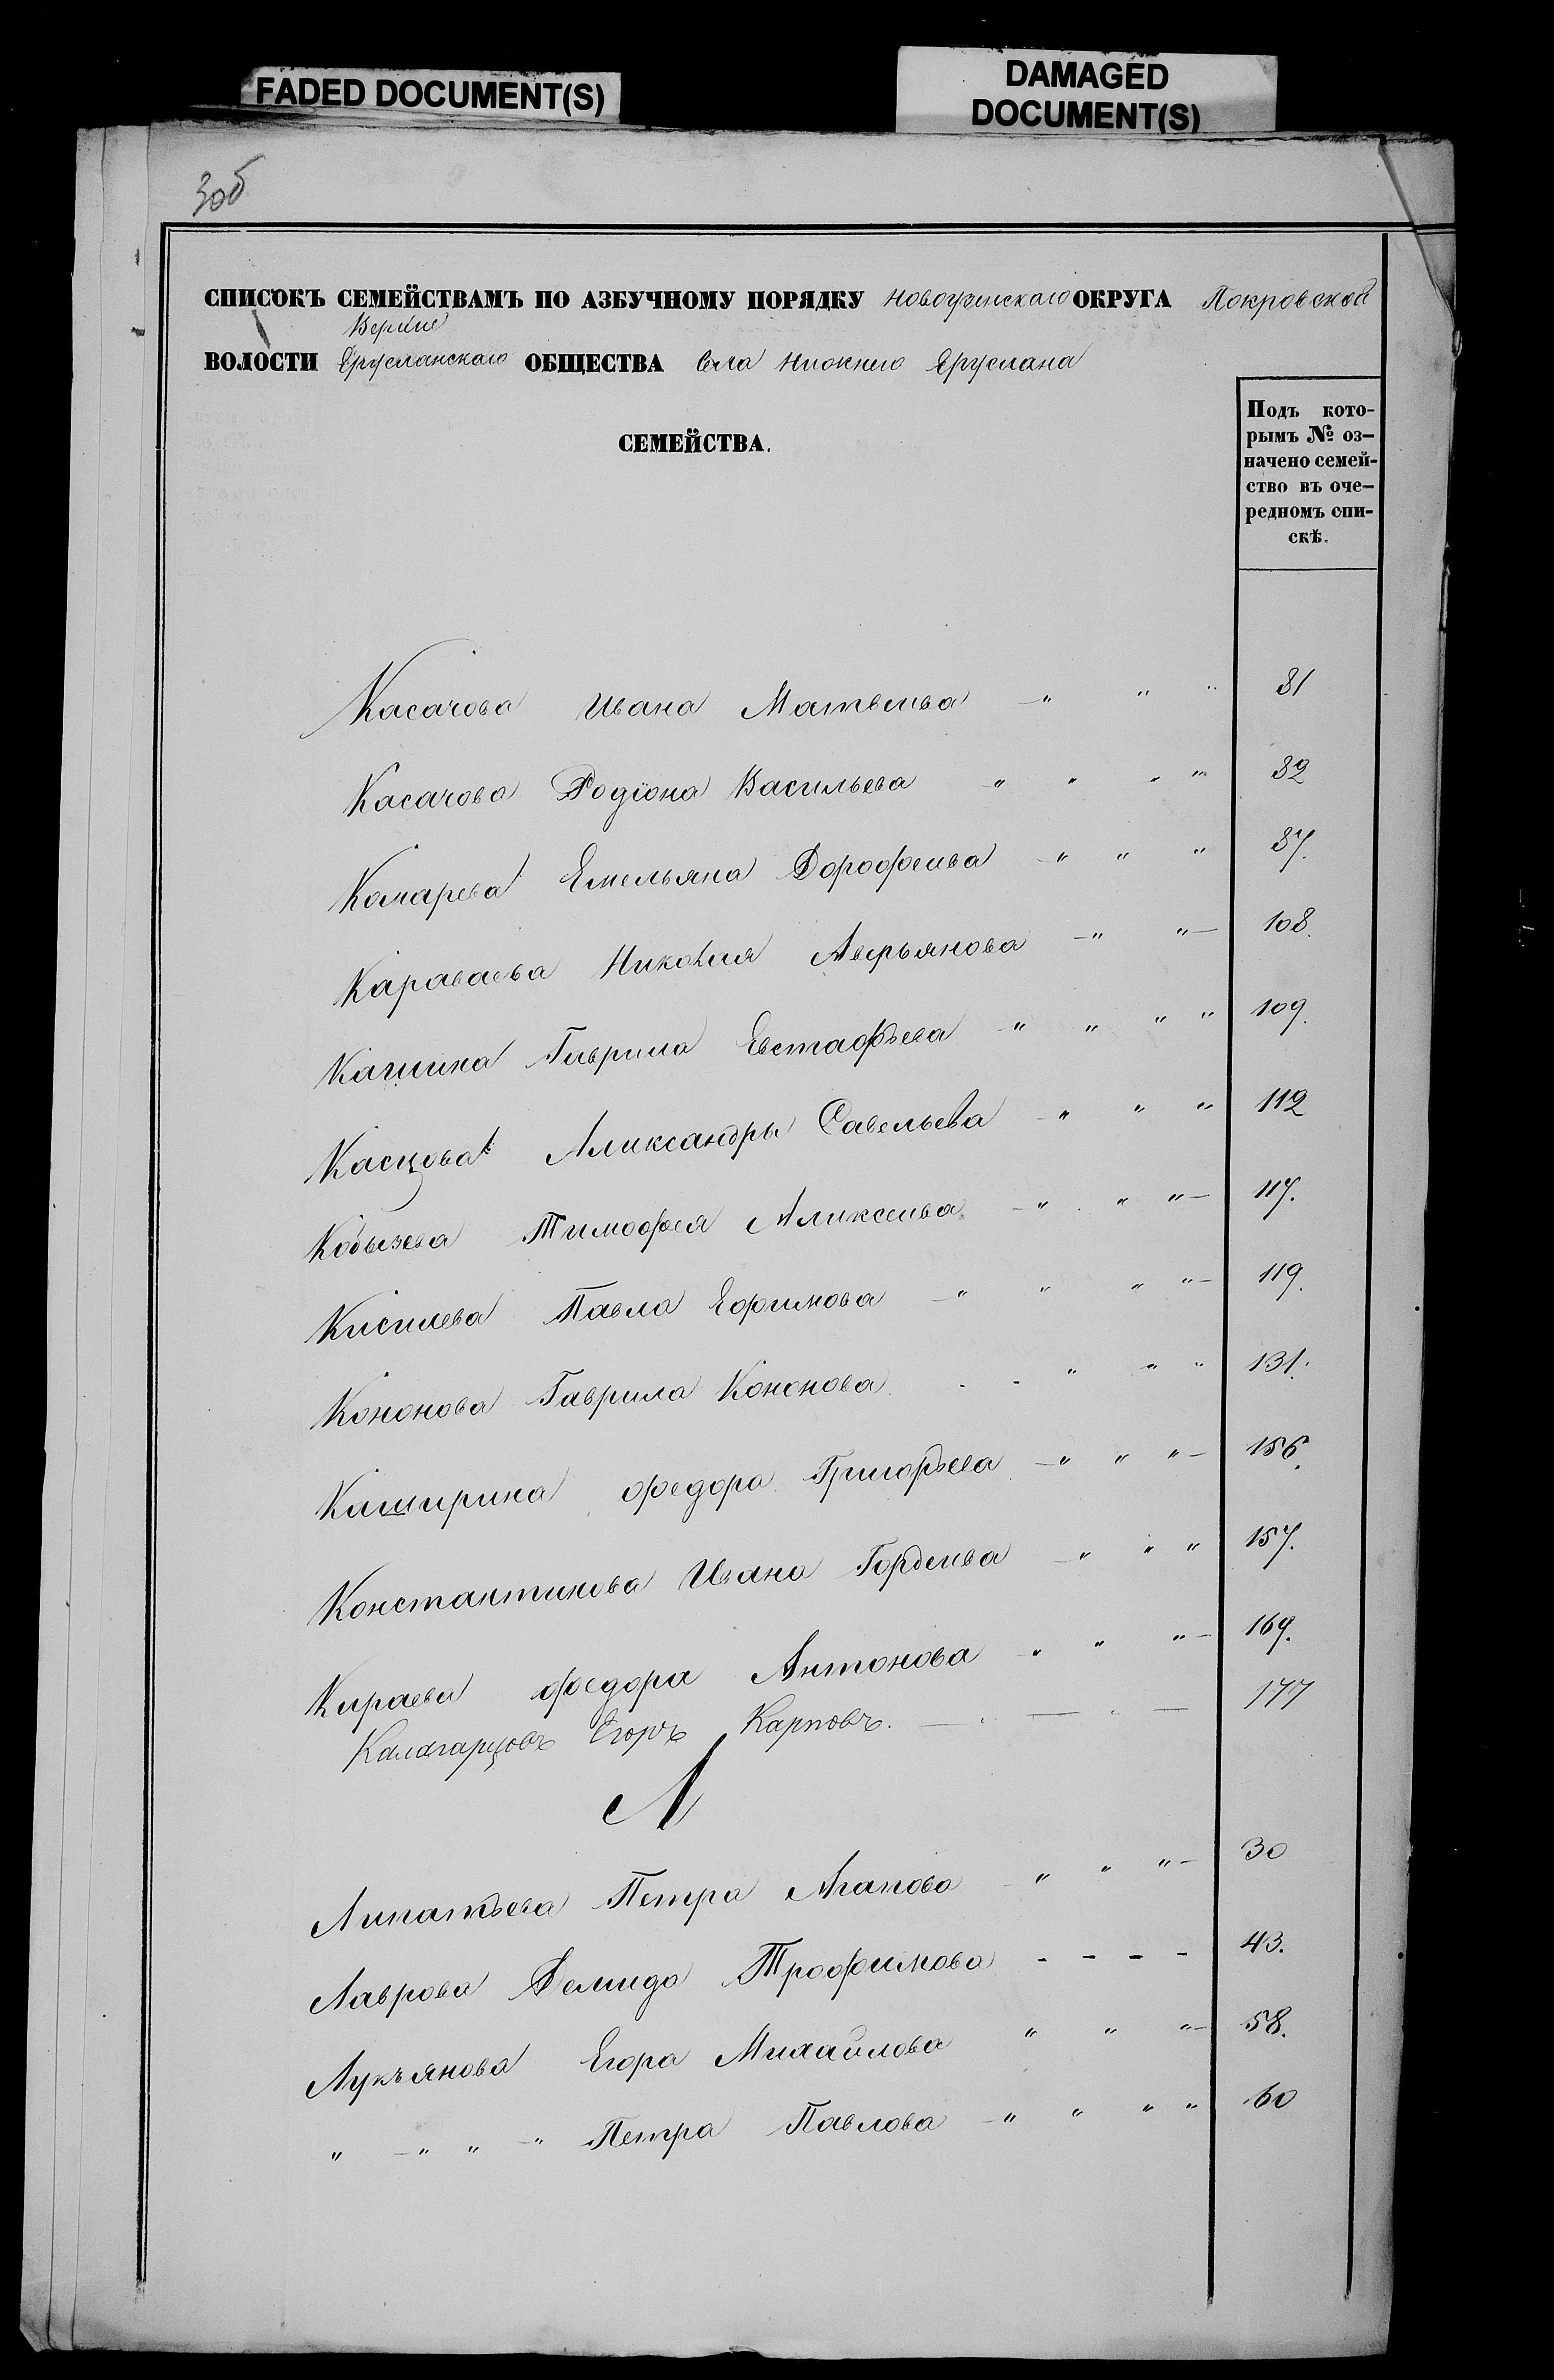 FADED DOCUMENT(S)
DAMAGED
DOCUMENT(S)
306
СПИСОКЪ СЕМЕЙСТВАМЪ ПО АЗБУЧНОМУ ПОРЯДКУ Новоузенскаго ОКРУГА Покровской
Верхне
ВОЛОСТИ Ерусланскаго ОБЩЕСТВА Села Нижнего Еруслана
СЕМЕЙСТВА.
Подъ кото-
рымъ № оз-
начено семей-
ство въ оче-
редномъ спи-
скѣ.
Касачова Ивана Матвеива " " " 31
Касачова Родіона Васильева " " " " 32
Комарева Емельяна Дорофеива " " " 37.
Караваева Николая Аверьянова " " 108.
Кашина Гаврила Евстафьева " " " " 109.
Касцова Александры Савельева " " " 112
Кобызева Тимофея Аликсеива " " " 117.
Кисилева Павла Ефимова " " " " 119.
Кононова Гаврила Кононова - - " " " 131.
Каширина Федора Григорьева " " " 156.
Константинова Ивана Гордеива " " " 157.
Кираева Федора Антонова " " " 169.
Егоръ Карповъ. 177
Л
Липатьева Петра Агапова " " " 30
Лаврова Демида Трофимова - - - - 43.
Лукъянова Егора Михайлова " " " 58.
" " " " Петра Павлова " " " " 60